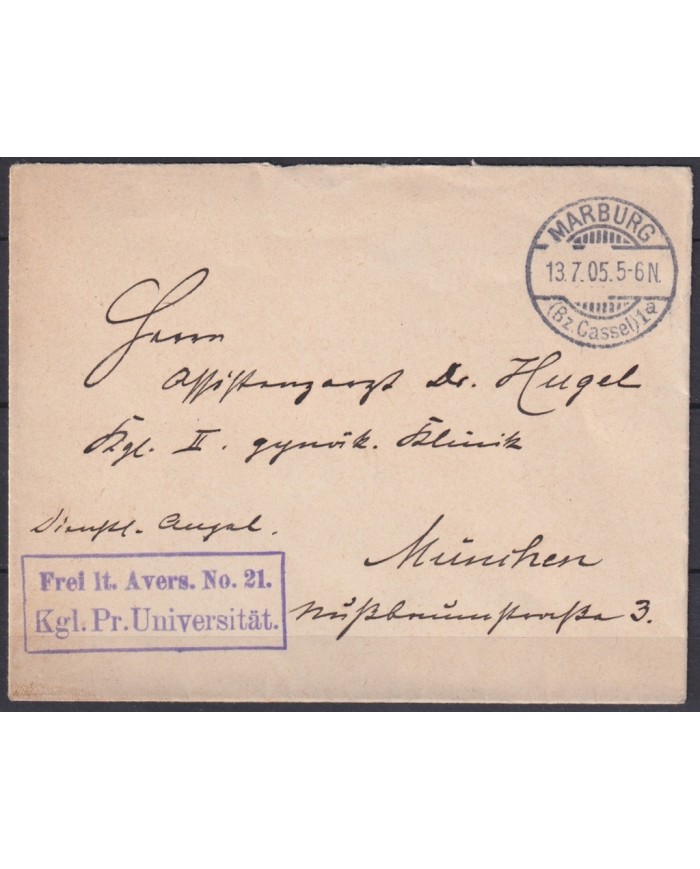 MARBURG
13.7.05.5-6N.
(Bz.Cassel)1a
Herrn
Assistenzarzt Dr. Hugel
Kgl. II. gynäk. Klinik
Dienstl. Angel.
München
Nußbaumstraße 3.
Frei lt. Avers. No. 21.
Kgl. Pr. Universität.